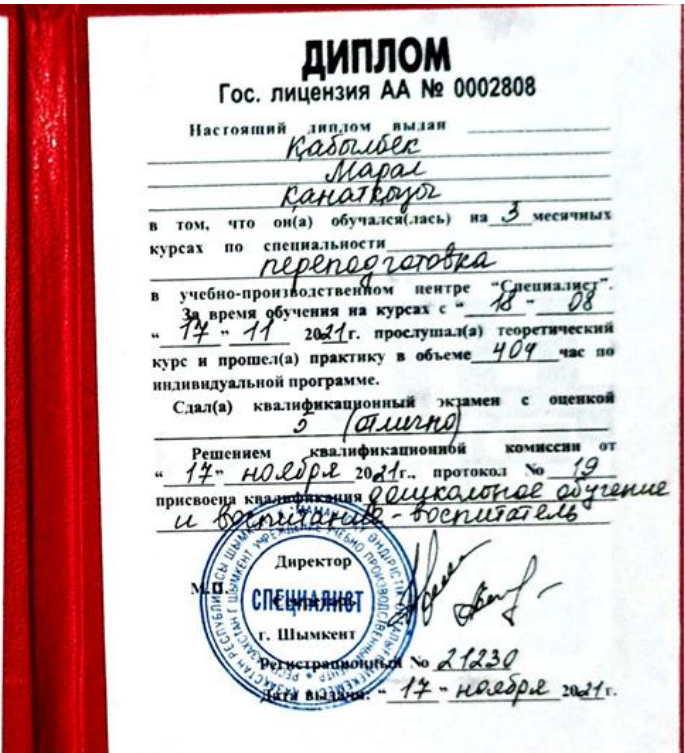 ДИПЛОМ
Гос. лицензия АА № 0002808
Настоящий диплом выдан
Қабылбек
Марал
Қанатқызы
в том, что он(а) обучался(лась) на 3 месячных
курсах по специальности
переподготовка
в учебно-производственном центре "Специалист".
За время обучения на курсах с "18" 08
"17" 11 2021г. прослушал(а) теоретический
курс и прошел(а) практику в объеме 404 час по
индивидуальной программе.
Сдал(а) квалификационный экзамен с оценкой
5 (отлично)
Решением квалификационной комиссии от
"17" ноября 2021г., протокол No 19
присвоена квалификация дошкольное обучение
и воспитание - воспитатель
Директор
М.П.
СПЕЦИАЛИСТ
г. Шымкент
Регистрационный No 21230
Дата выдачи: "17" ноября 2021г.